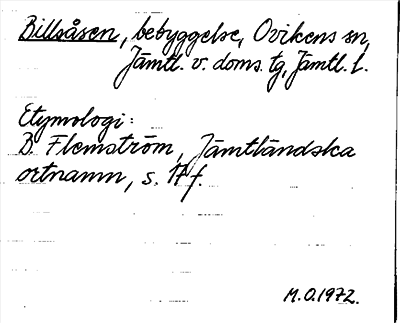 Billsåsen, bebyggelse, Ovikens sn,
Jämtl. v. doms. tg, Jämtl. l.
Etymologi:
B. Flemström, Jämtländska
ortnamn, s. 17 f.
M.O. 1972.